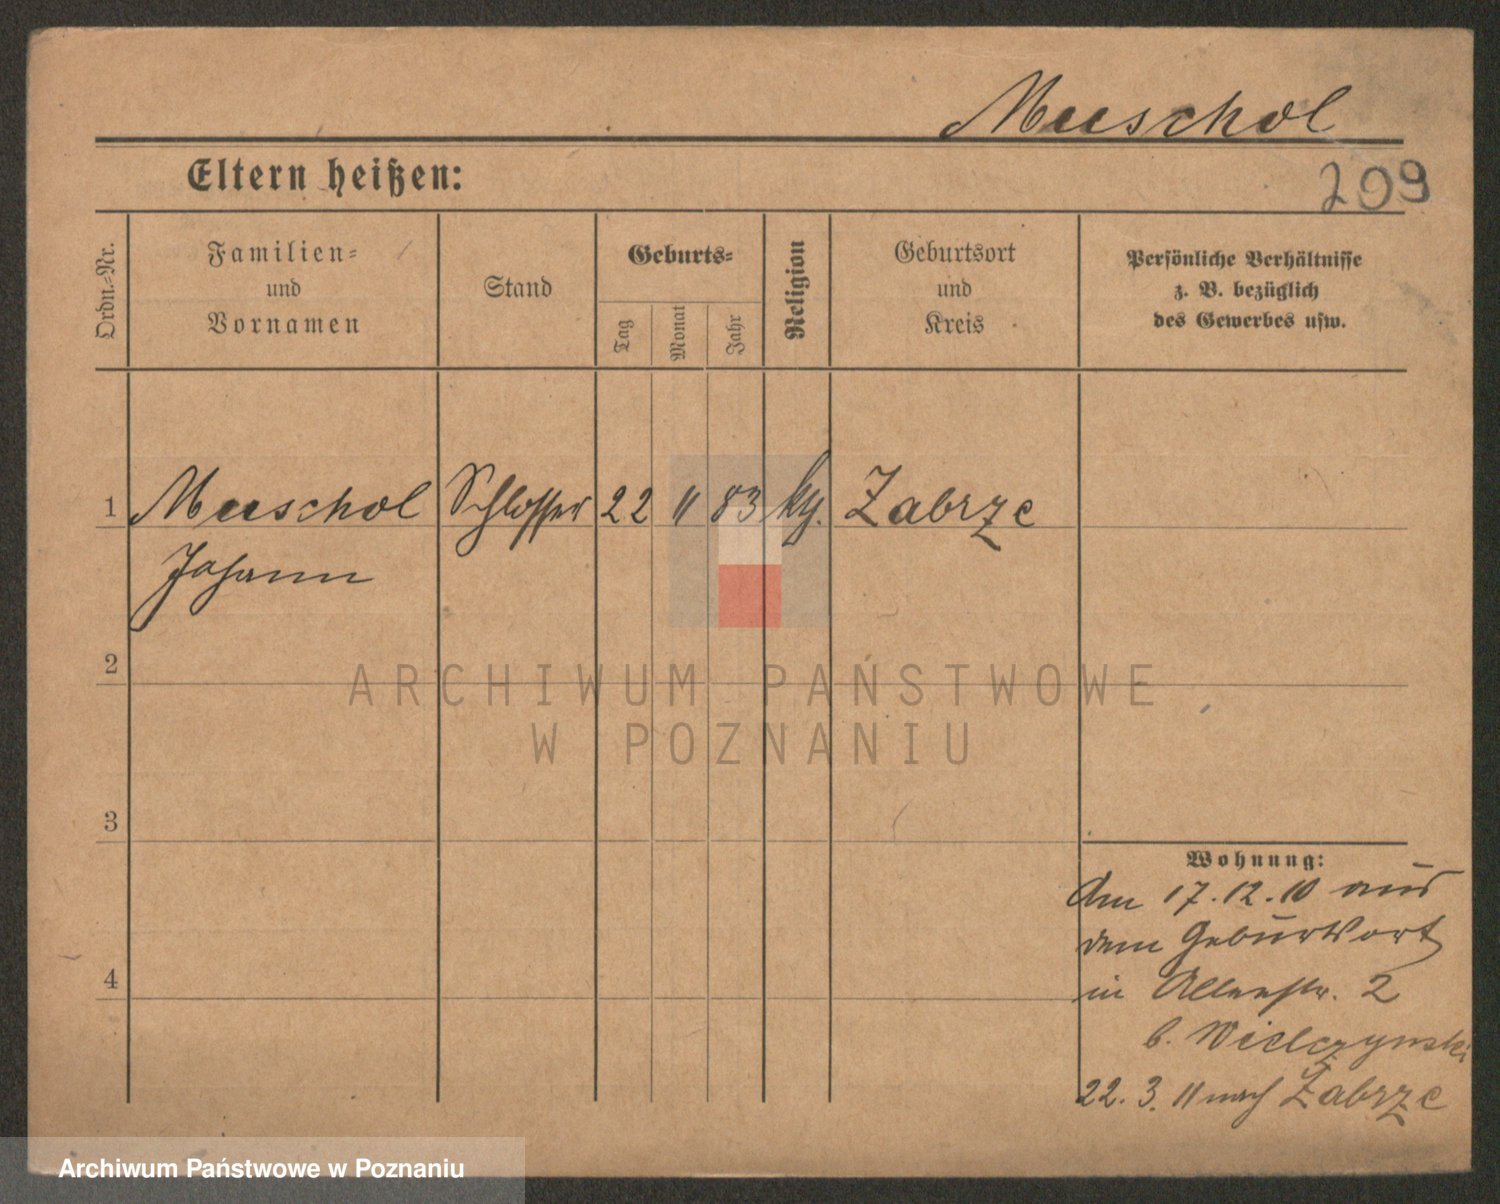 Muschol
Eltern heißen:
209
Ordn.-Nr.
Familien-
und
Vornamen
Stand
Geburts-
Tag
Monat
Jahr
Religion
Geburtsort
und
Kreis
Persönliche Verhältnisse
z. B. bezüglich
des Gewerbes usw.
1 Muschol Schlosser 22 11 83 kth. Zabrze
Johann
2
3
4
Wohnung:
Am 17.12.10 aus
dem Geburtsort
in Alleestr. 2
b. Wielczynski
22. 3. 11 nach Zabrze
ARCHIWUM PAŃSTWOWE
W POZNANIU
Archiwum Państwowe w Poznaniu